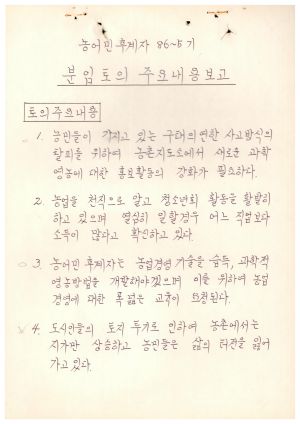 농어민후계자 86~5기
분임토의 주요내용보고
토의주요내용
1. 농민들이 가지고 있는 구태의연한 사고방식의
탈피를 위하여 농촌지도소에서 새로운 과학
영농에 대한 홍보활동의 강화가 필요하다.
2. 농업을 천직으로 알고 청소년회 활동을 활발히
하고 있으며 열심히 일할경우 어느 직업보다
소득이 많다고 확신하고 있다.
3. 농어민 후계자는 농업경영 기술을 습득, 과학적
영농방법을 개발해야겠으며 이를 위하여 농업
경영에 대한 폭넓은 교육이 요청된다.
4. 도시인들의 토지 투기로 인하여 농촌에서는
지가만 상승하고 농민들은 삶의 터전을 잃어
가고 있다.